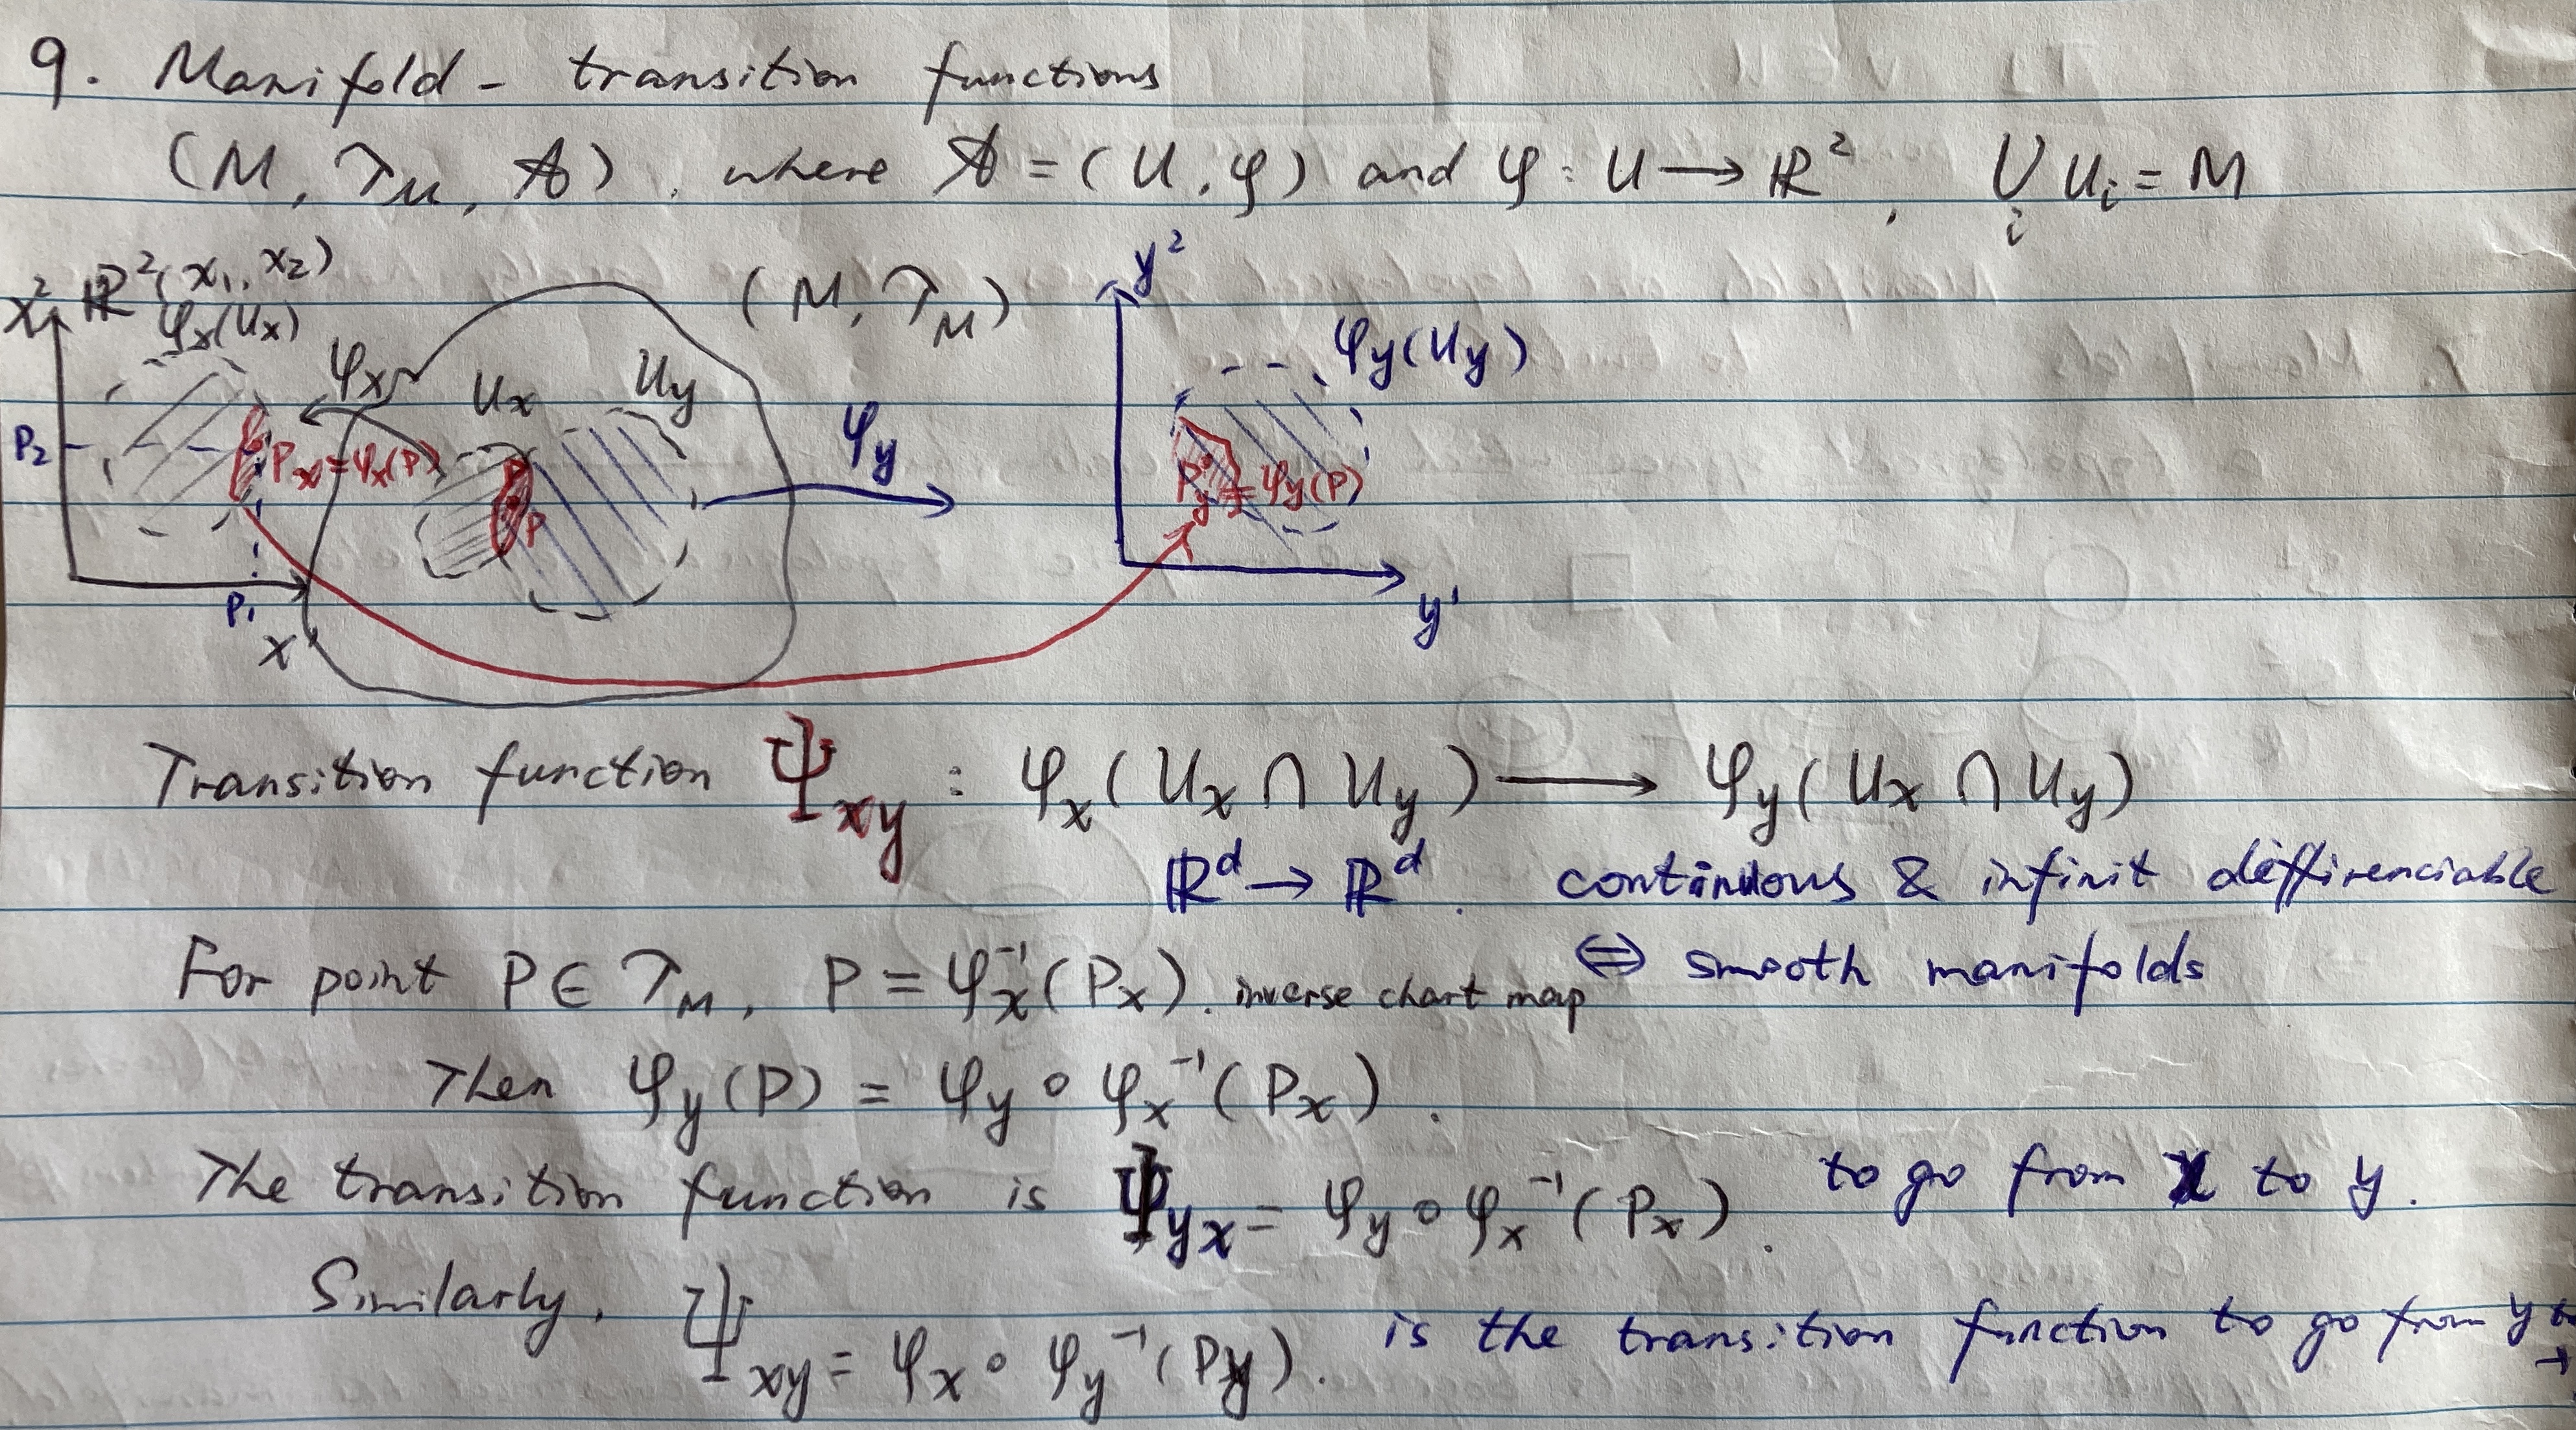 9. Manifold - transition functions
(M, τ_M, A), where A = (U, φ) and φ : U → ℝ², ⋃_i U_i = M
x² ℝ²(x₁, x₂)
φ_x(U_x)
(M, τ_M)
y²
φ_x
U_x
U_y
φ_y
φ_y(U_y)
P₂
P_x = φ_x(P)
P
P
P_y = φ_y(P)
P₁
x'
y'
Transition function Ψ_xy : φ_x(U_x ∩ U_y) ⟶ φ_y(U_x ∩ U_y)
ℝ^d → ℝ^d. continuous & infinit diffirenciable
For point P ∈ τ_M, P = φ_x⁻¹(P_x). inverse chart map ⇔ smooth manifolds
Then φ_y(P) = φ_y ∘ φ_x⁻¹(P_x).
The transition function is Ψ_yx = φ_y ∘ φ_x⁻¹(P_x). to go from x to y.
Similarly, Ψ_xy = φ_x ∘ φ_y⁻¹(P_y). is the transition function to go from y to
→